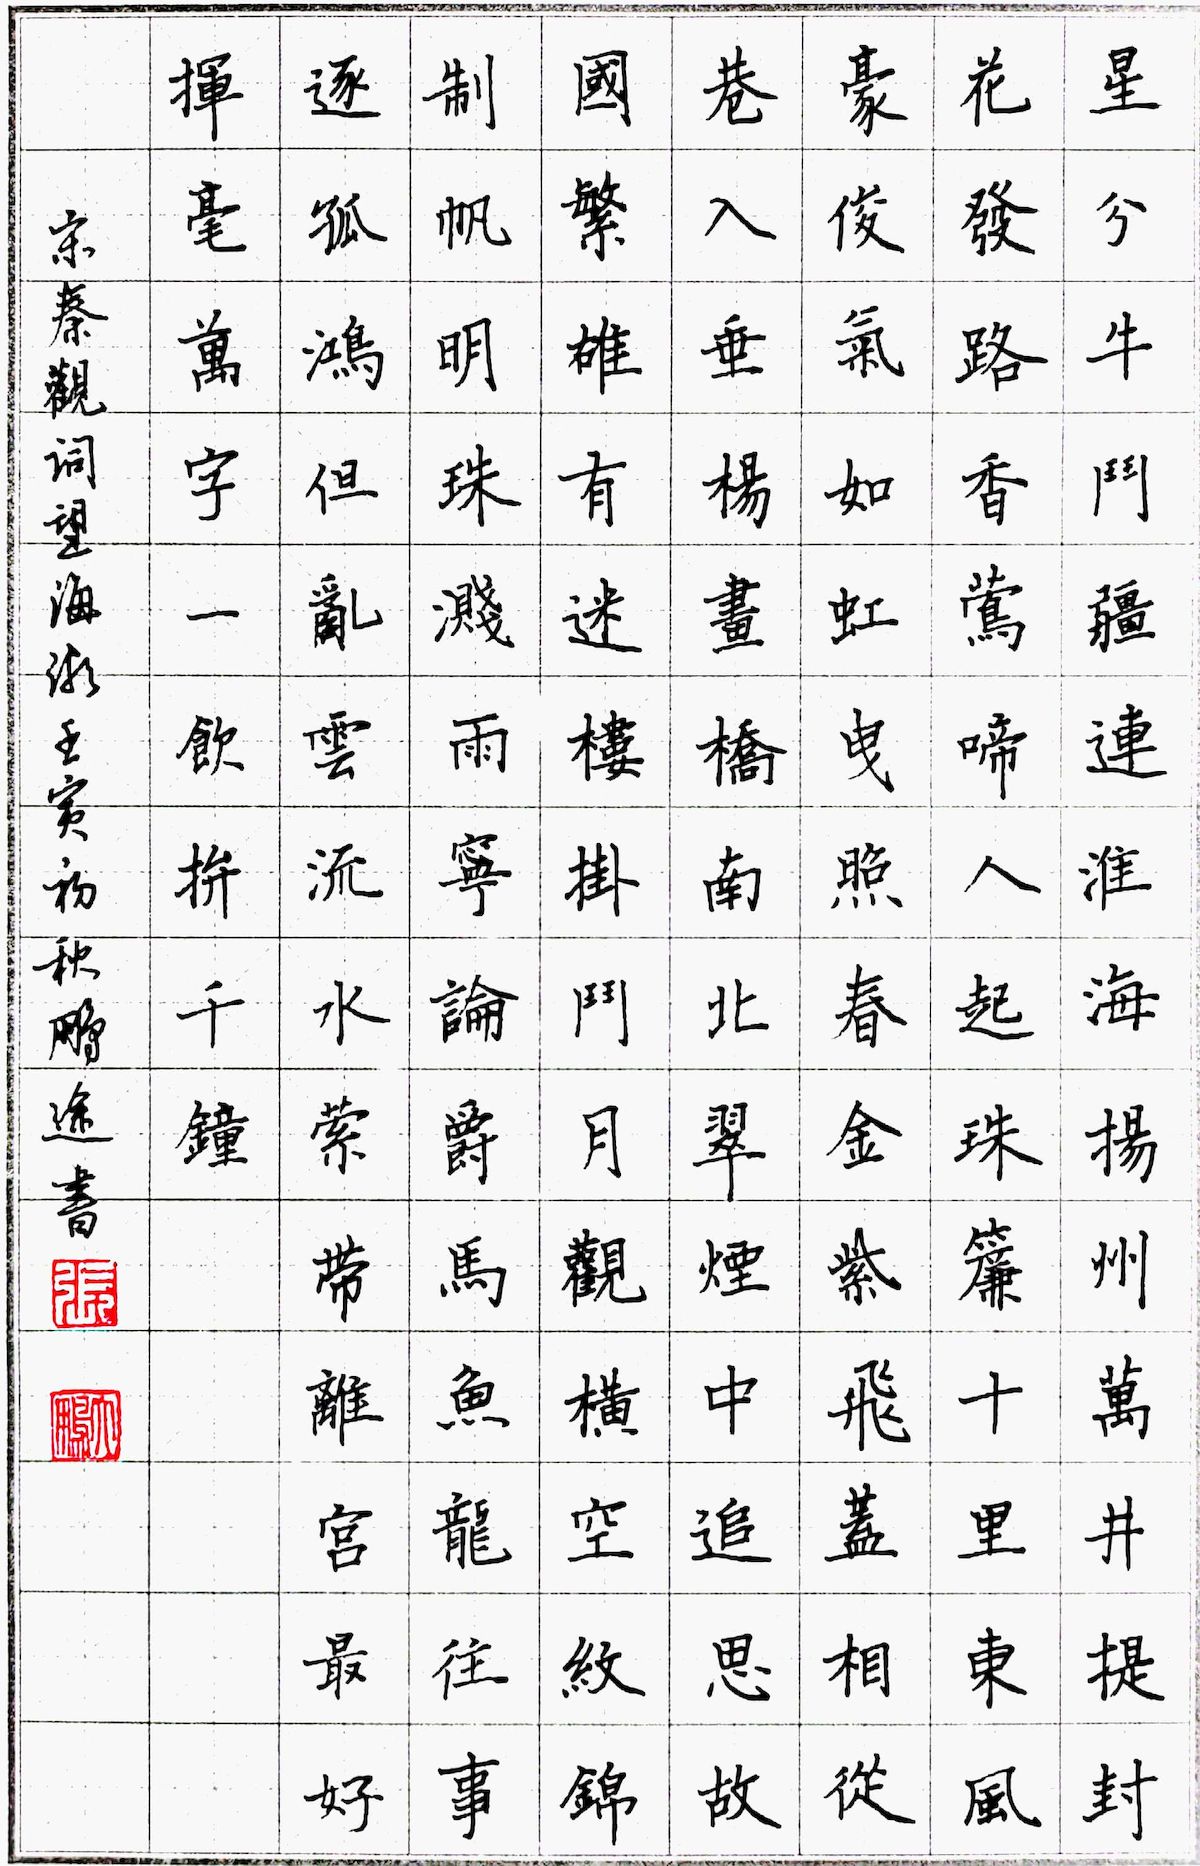 星分牛鬥疆連淮海揚州萬井提封
花發路香鶯啼人起珠簾十里東風
豪俊氣如虹曳照春金紫飛蓋相從
巷入垂楊畫橋南北翠煙中追思故
國繁雄有迷樓掛鬥月觀橫空紋錦
制帆明珠濺雨寧論爵馬魚龍往事
逐孤鴻但亂雲流水縈帶離宮最好
揮毫萬字一飲拚千鐘
宋秦觀詞望海潮壬寅初秋鵬途書
張